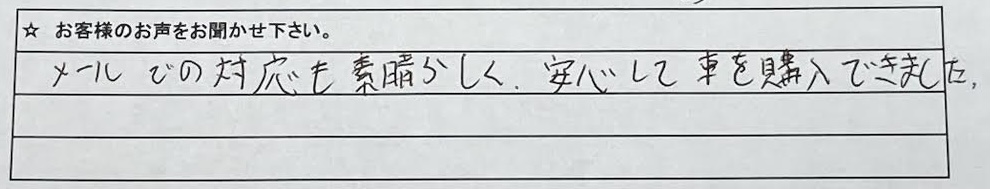 ☆ お客様のお声をお聞かせ下さい。
メールでの対応も素晴らしく、安心して車を購入できました。